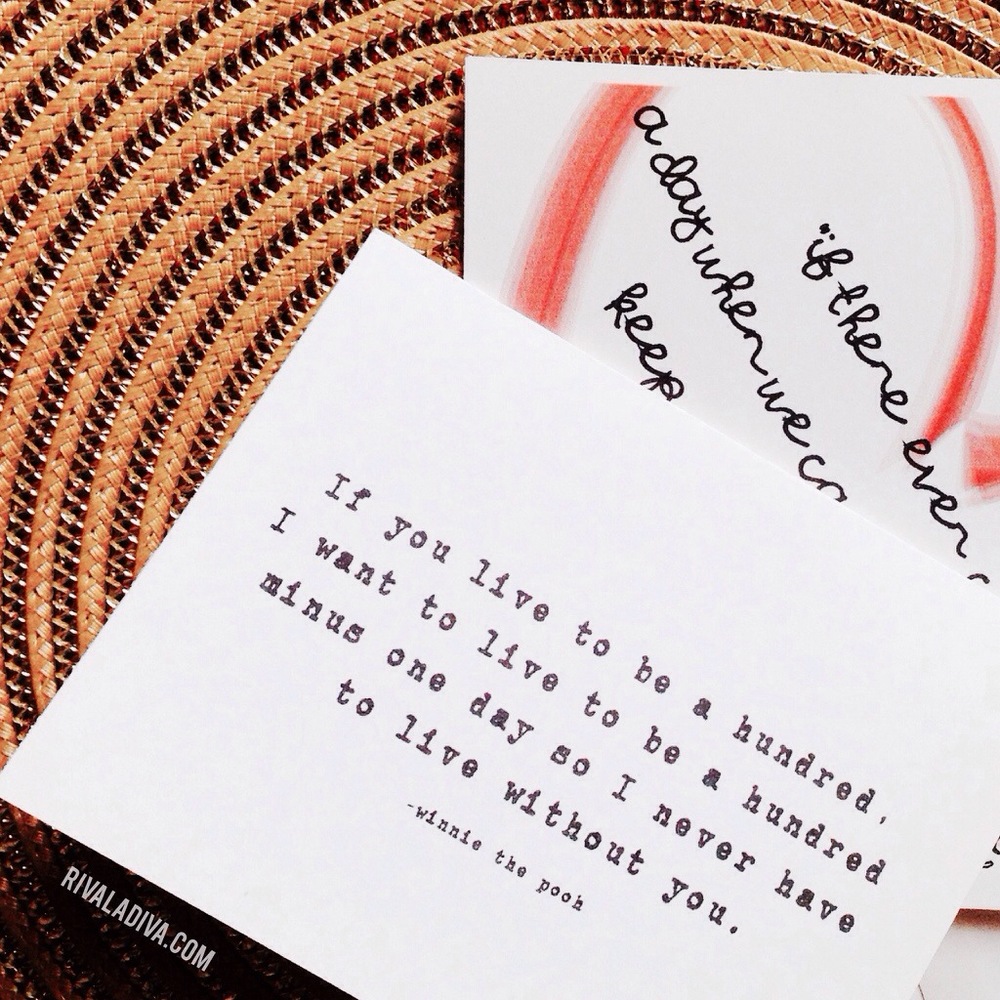 "if there ever
a day when we
keep
If you live to be a hundred,
I want to live to be a hundred
minus one day so I never have
to live without you.
-winnie the pooh
RIVALADIVA.COM